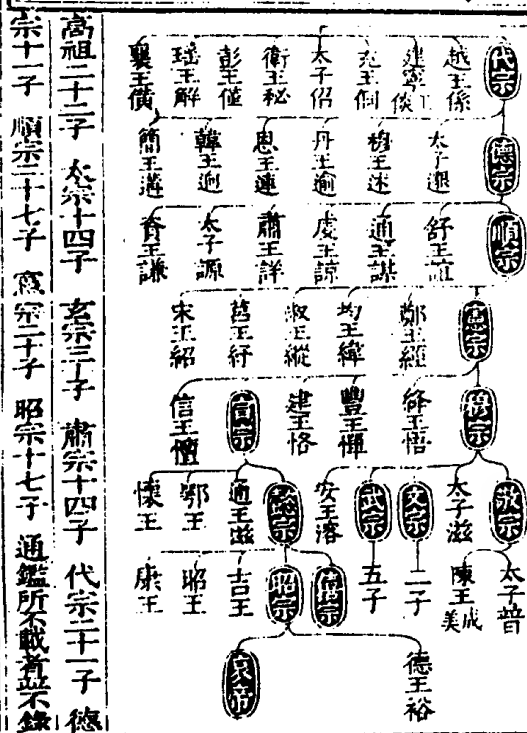 代宗
越王係
建寧王倓
太子佋
衛王秘
彭王僅
瑶王解
襄王僙
德宗
太子邈
穆王述
丹王逾
恩王連
韓王迥
簡王遘
順宗
舒王誼
通王諶
虔王諒
肅王詳
太子源
資王謙
憲宗
鄭王經
均王緯
溆王縱
莒王紓
宋王紹
穆宗
絳王悟
豐王惲
建王恪
宣宗
信王憻
敬宗
太子滋
文宗
武宗
安王溶
懿宗
通王滋
鄂王
懷王
太子普
陳王成美
二子
五子
僖宗
昭宗
吉王
昭王
康王
德王裕
哀帝
高祖二十二子 太宗十四子 玄宗三十子 肅宗十四子 代宗二十一子 德
宗十一子 順宗二十七子 憲宗二十子 昭宗十七子 通鑑所不載者並不錄